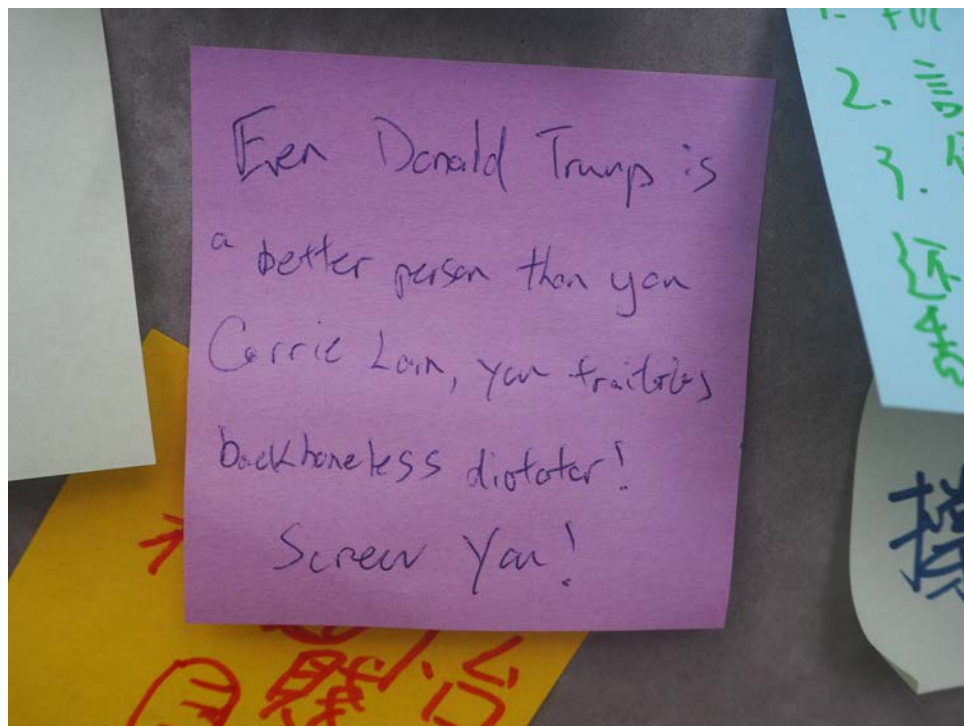 Even Donald Trump is
a better person than you
Carrie Lam, you traitorous
backboneless dictator!
Screw You!
2. 言
3.